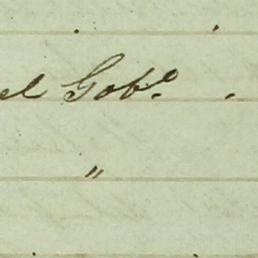 el Gob.º .
"